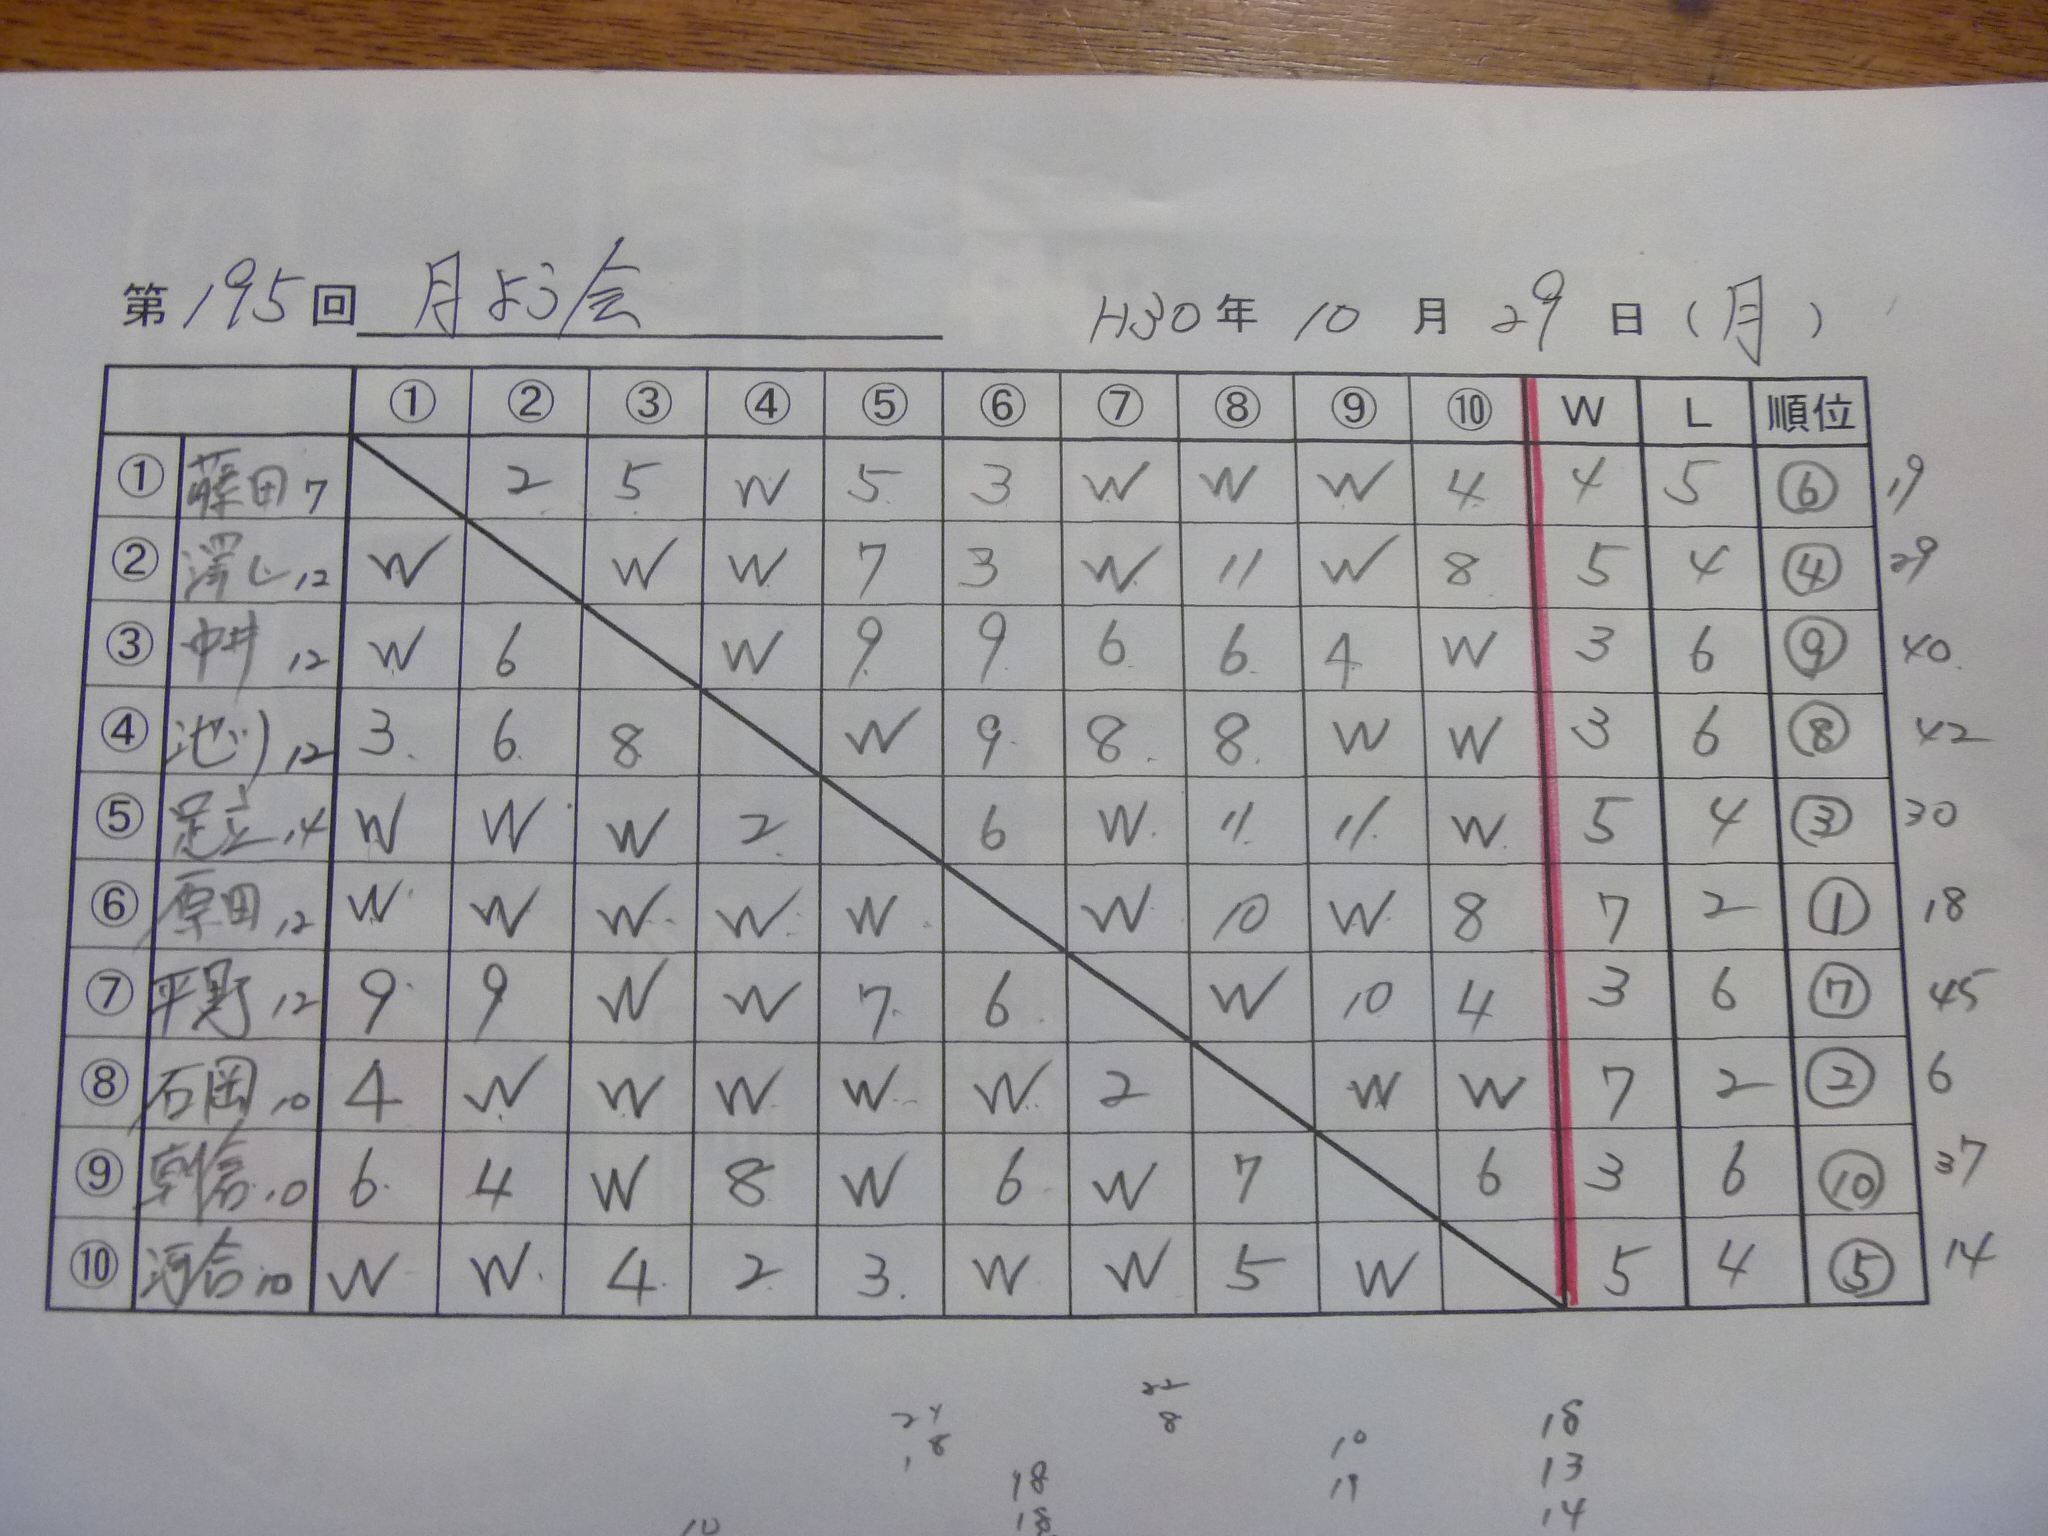 第195回 月よう会 H30年 10月 29日(月)
① ② ③ ④ ⑤ ⑥ ⑦ ⑧ ⑨ ⑩ W L 順位
① 藤田 7 2 5 W 5 3 W W W 4 4 5 ⑥ 19
② 12 W W W 7 3 W 11 W 8 5 4 ④ 29
③ 中井 12 W 6 W 9 9 6 6 4 W 3 6 ⑨ 40
④ 12 3 6 8 W 9 8 8 W W 3 6 ⑧ 42
⑤ 足立 14 W W W 2 6 W 11 11 W 5 4 ③ 30
⑥ 原田 12 W W W W W W 10 W 8 7 2 ① 18
⑦ 平野 12 9 9 W W 7 6 W 10 4 3 6 ⑦ 45
⑧ 石岡 10 4 W W W W W 2 W W 7 2 ② 6
⑨ 朝倉 10 6 4 W 8 W 6 W 7 6 3 6 ⑩ 37
⑩ 河合 10 W W 4 2 3 W W 5 W 5 4 ⑤ 14
22
8
18
10
18
13
19
14
10